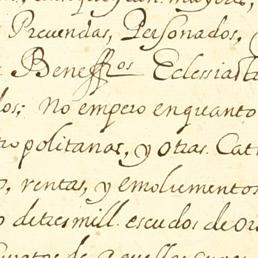 Preuendas, Personados,
Beneff.os Ecclesiast
dos; No empero enquanto
tropolitanas, y otras. Cat
o, rentas, y emolumentos
o detres mill. escudos de oro